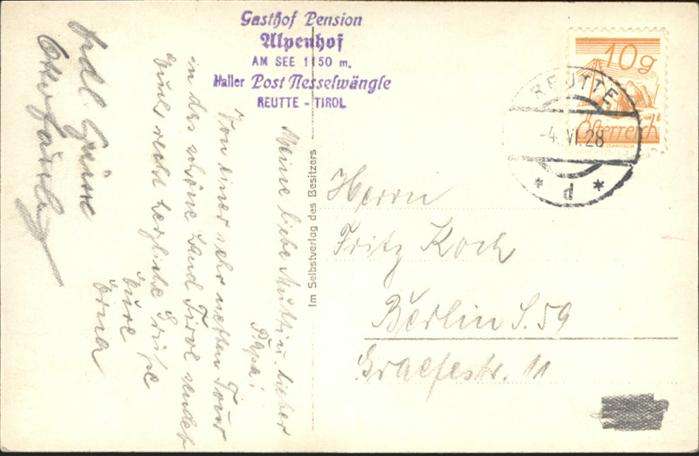 Gasthof Pension
Alpenhof
AM SEE 1150 m.
Haller Post Nesselwängle
REUTTE - TIROL
10g
Österreich
REUTTE
-4.VI.28
* d *
Im Selbstverlag des Besitzers
Meine liebe Mutti u. lieber
Papa!
Von einer sehr netten Tour
in das schöne Land Tirol sendet
Euch recht herzliche Grüße
Eure
Erna
Herrn
Fritz Koch
Berlin S. 59
Graefestr. 11